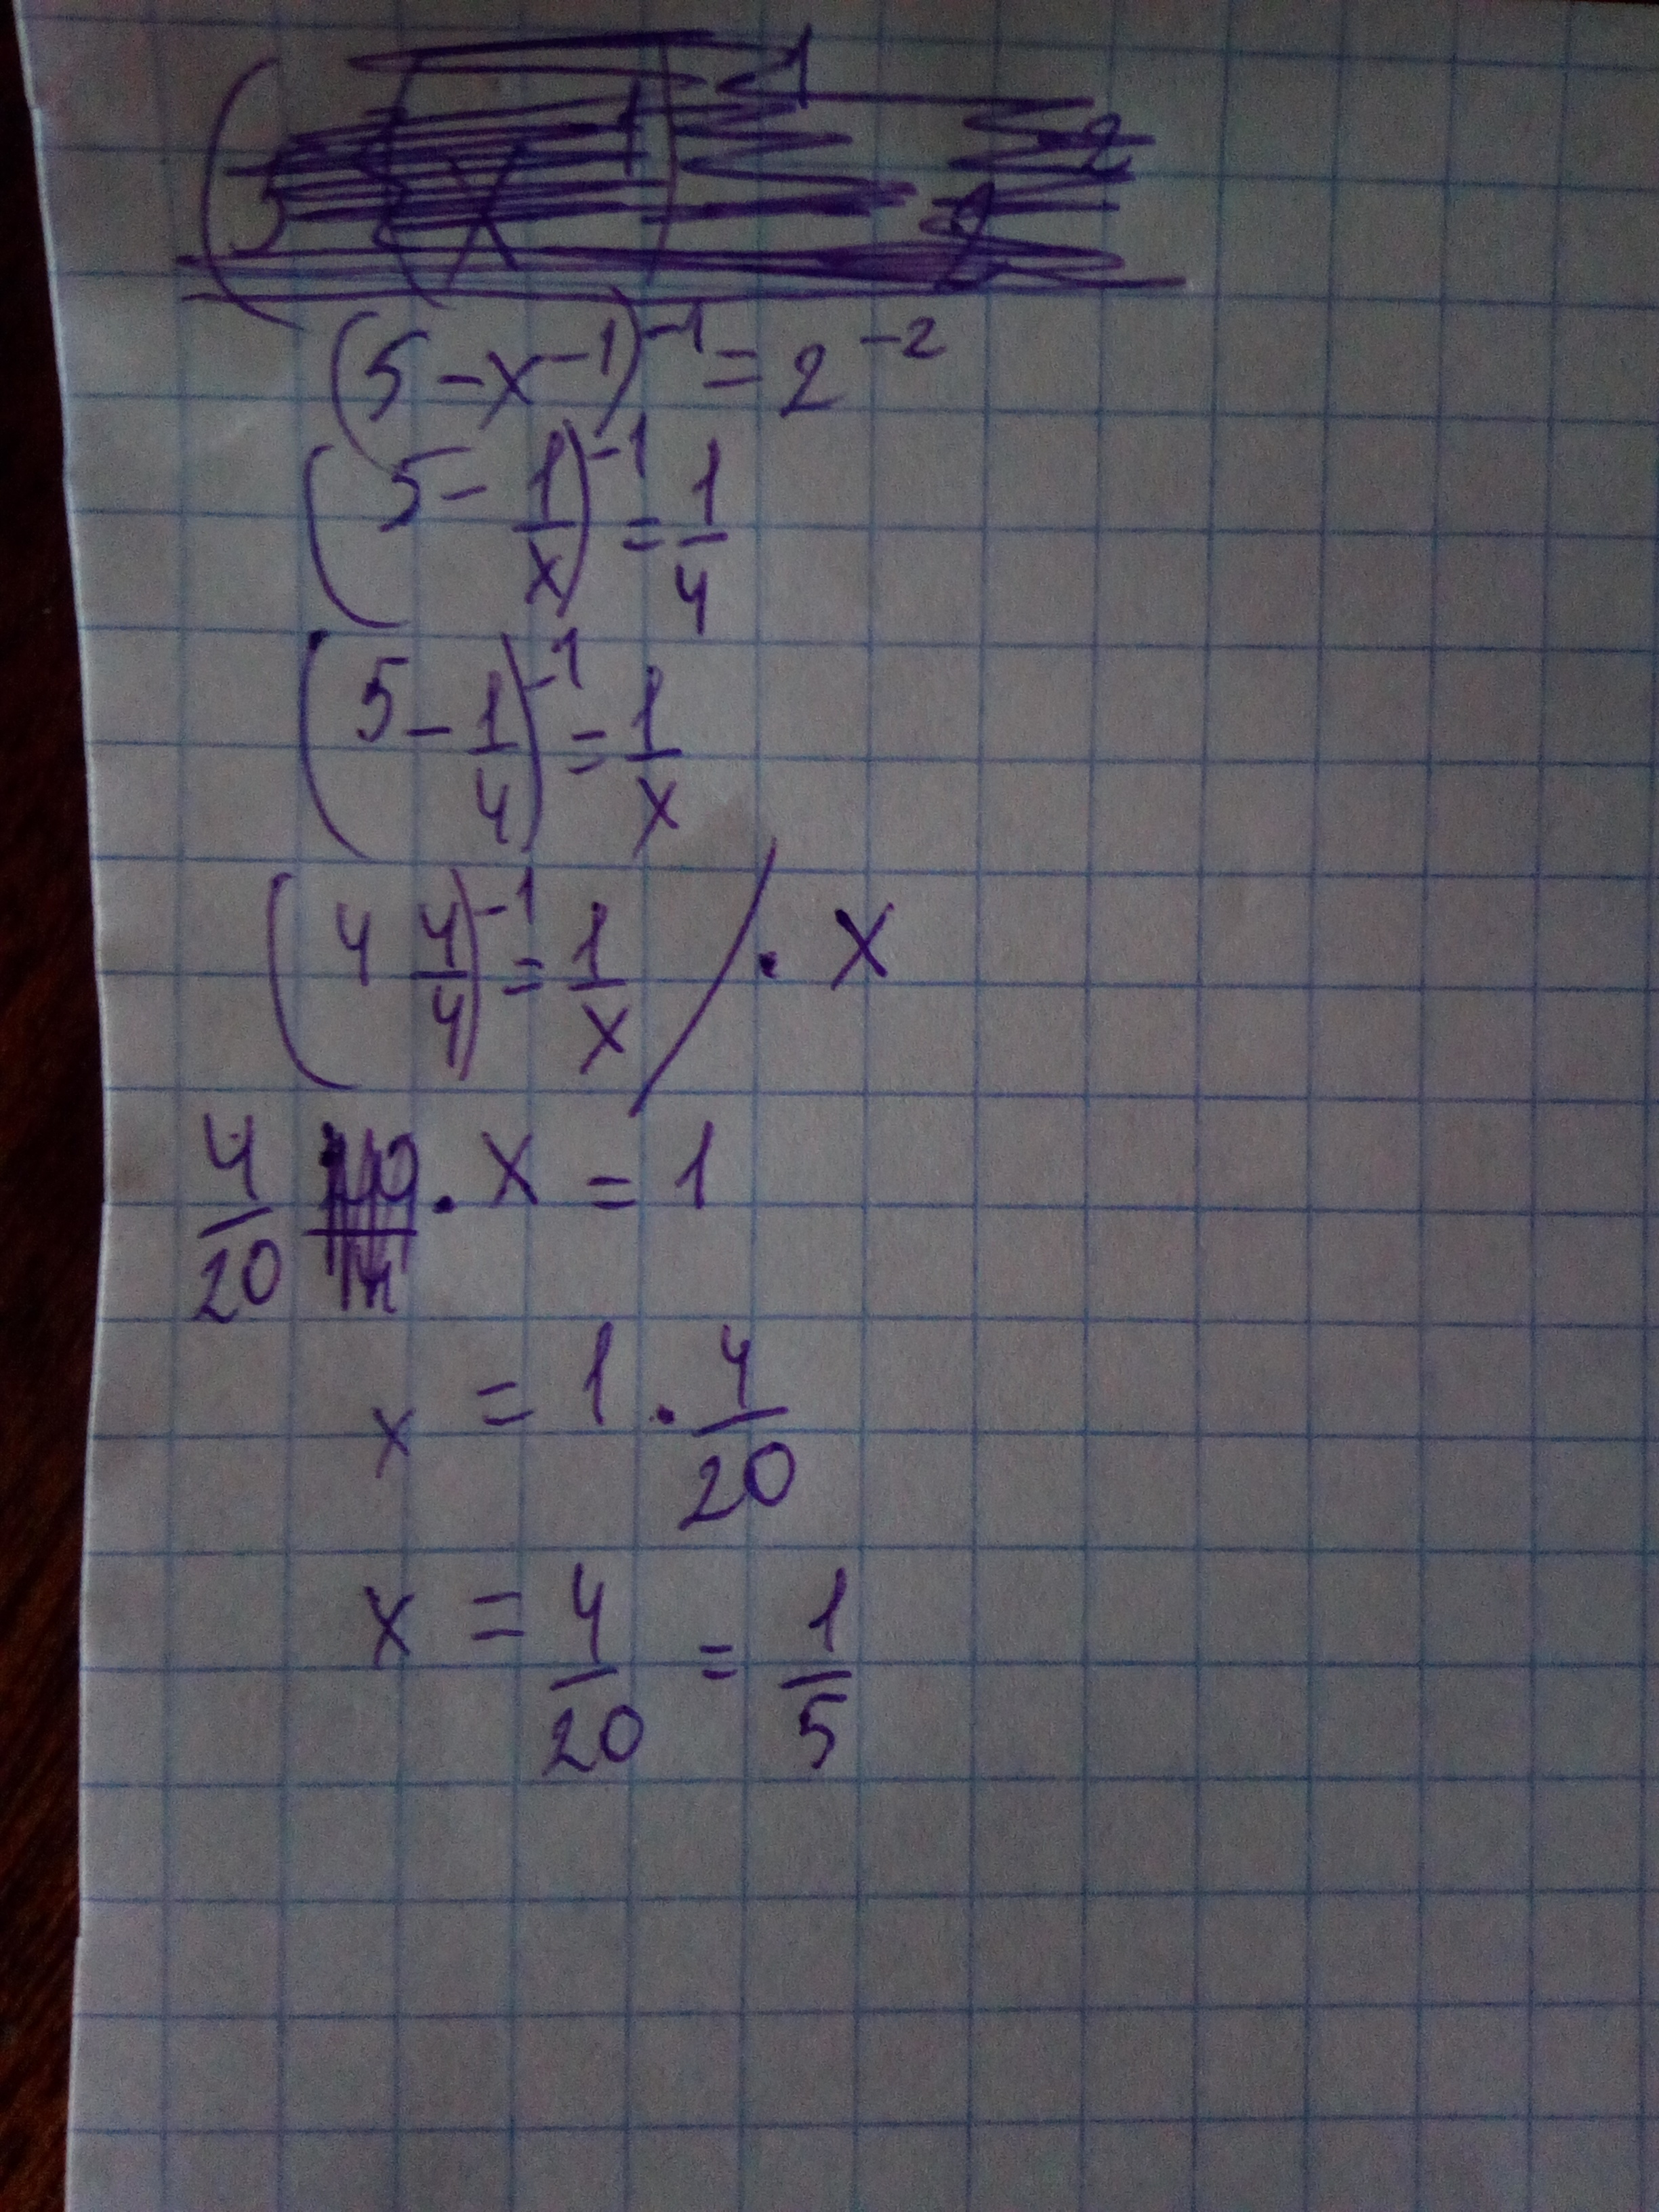 (5-x⁻¹)⁻¹=2⁻²
(5-1/x)⁻¹=1/4
(5-1/4)⁻¹=1/x
(4 4/4)⁻¹=1/x / · x
4/20 · x = 1
x = 1 · 4/20
x = 4/20 = 1/5